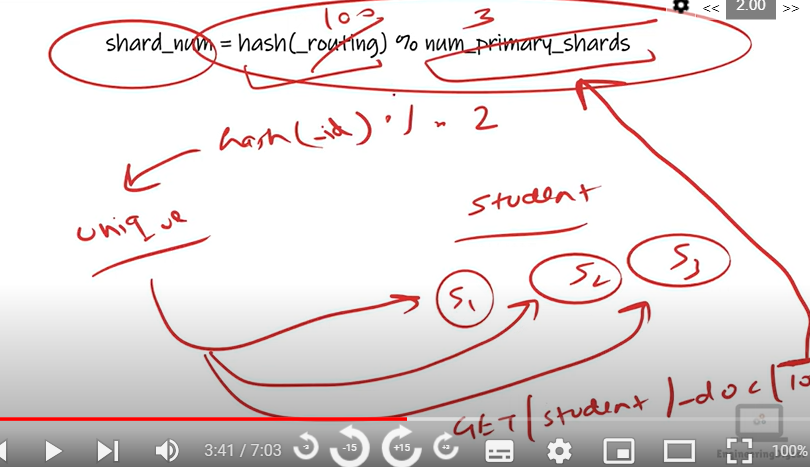 << 2.00 >>
100 3
shard_num = hash(_routing) % num_primary_shards
hash(_id) % 2
unique
student
S1 S2 S3
GET/student/_doc/10
3:41 / 7:03 -3 -15 +15 +3 100%